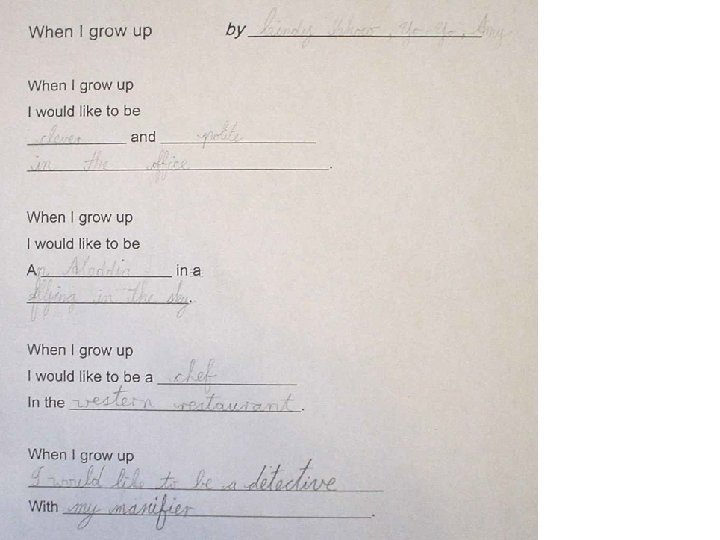 When I grow up by Cindy , Yo Yo, Amy
When I grow up
I would like to be
clever and polite
in the office.
When I grow up
I would like to be
An Aladdin in a
flying in the sky.
When I grow up
I would like to be a chef
In the western restaurant.
When I grow up
I would like to be a detective
With my manifier.